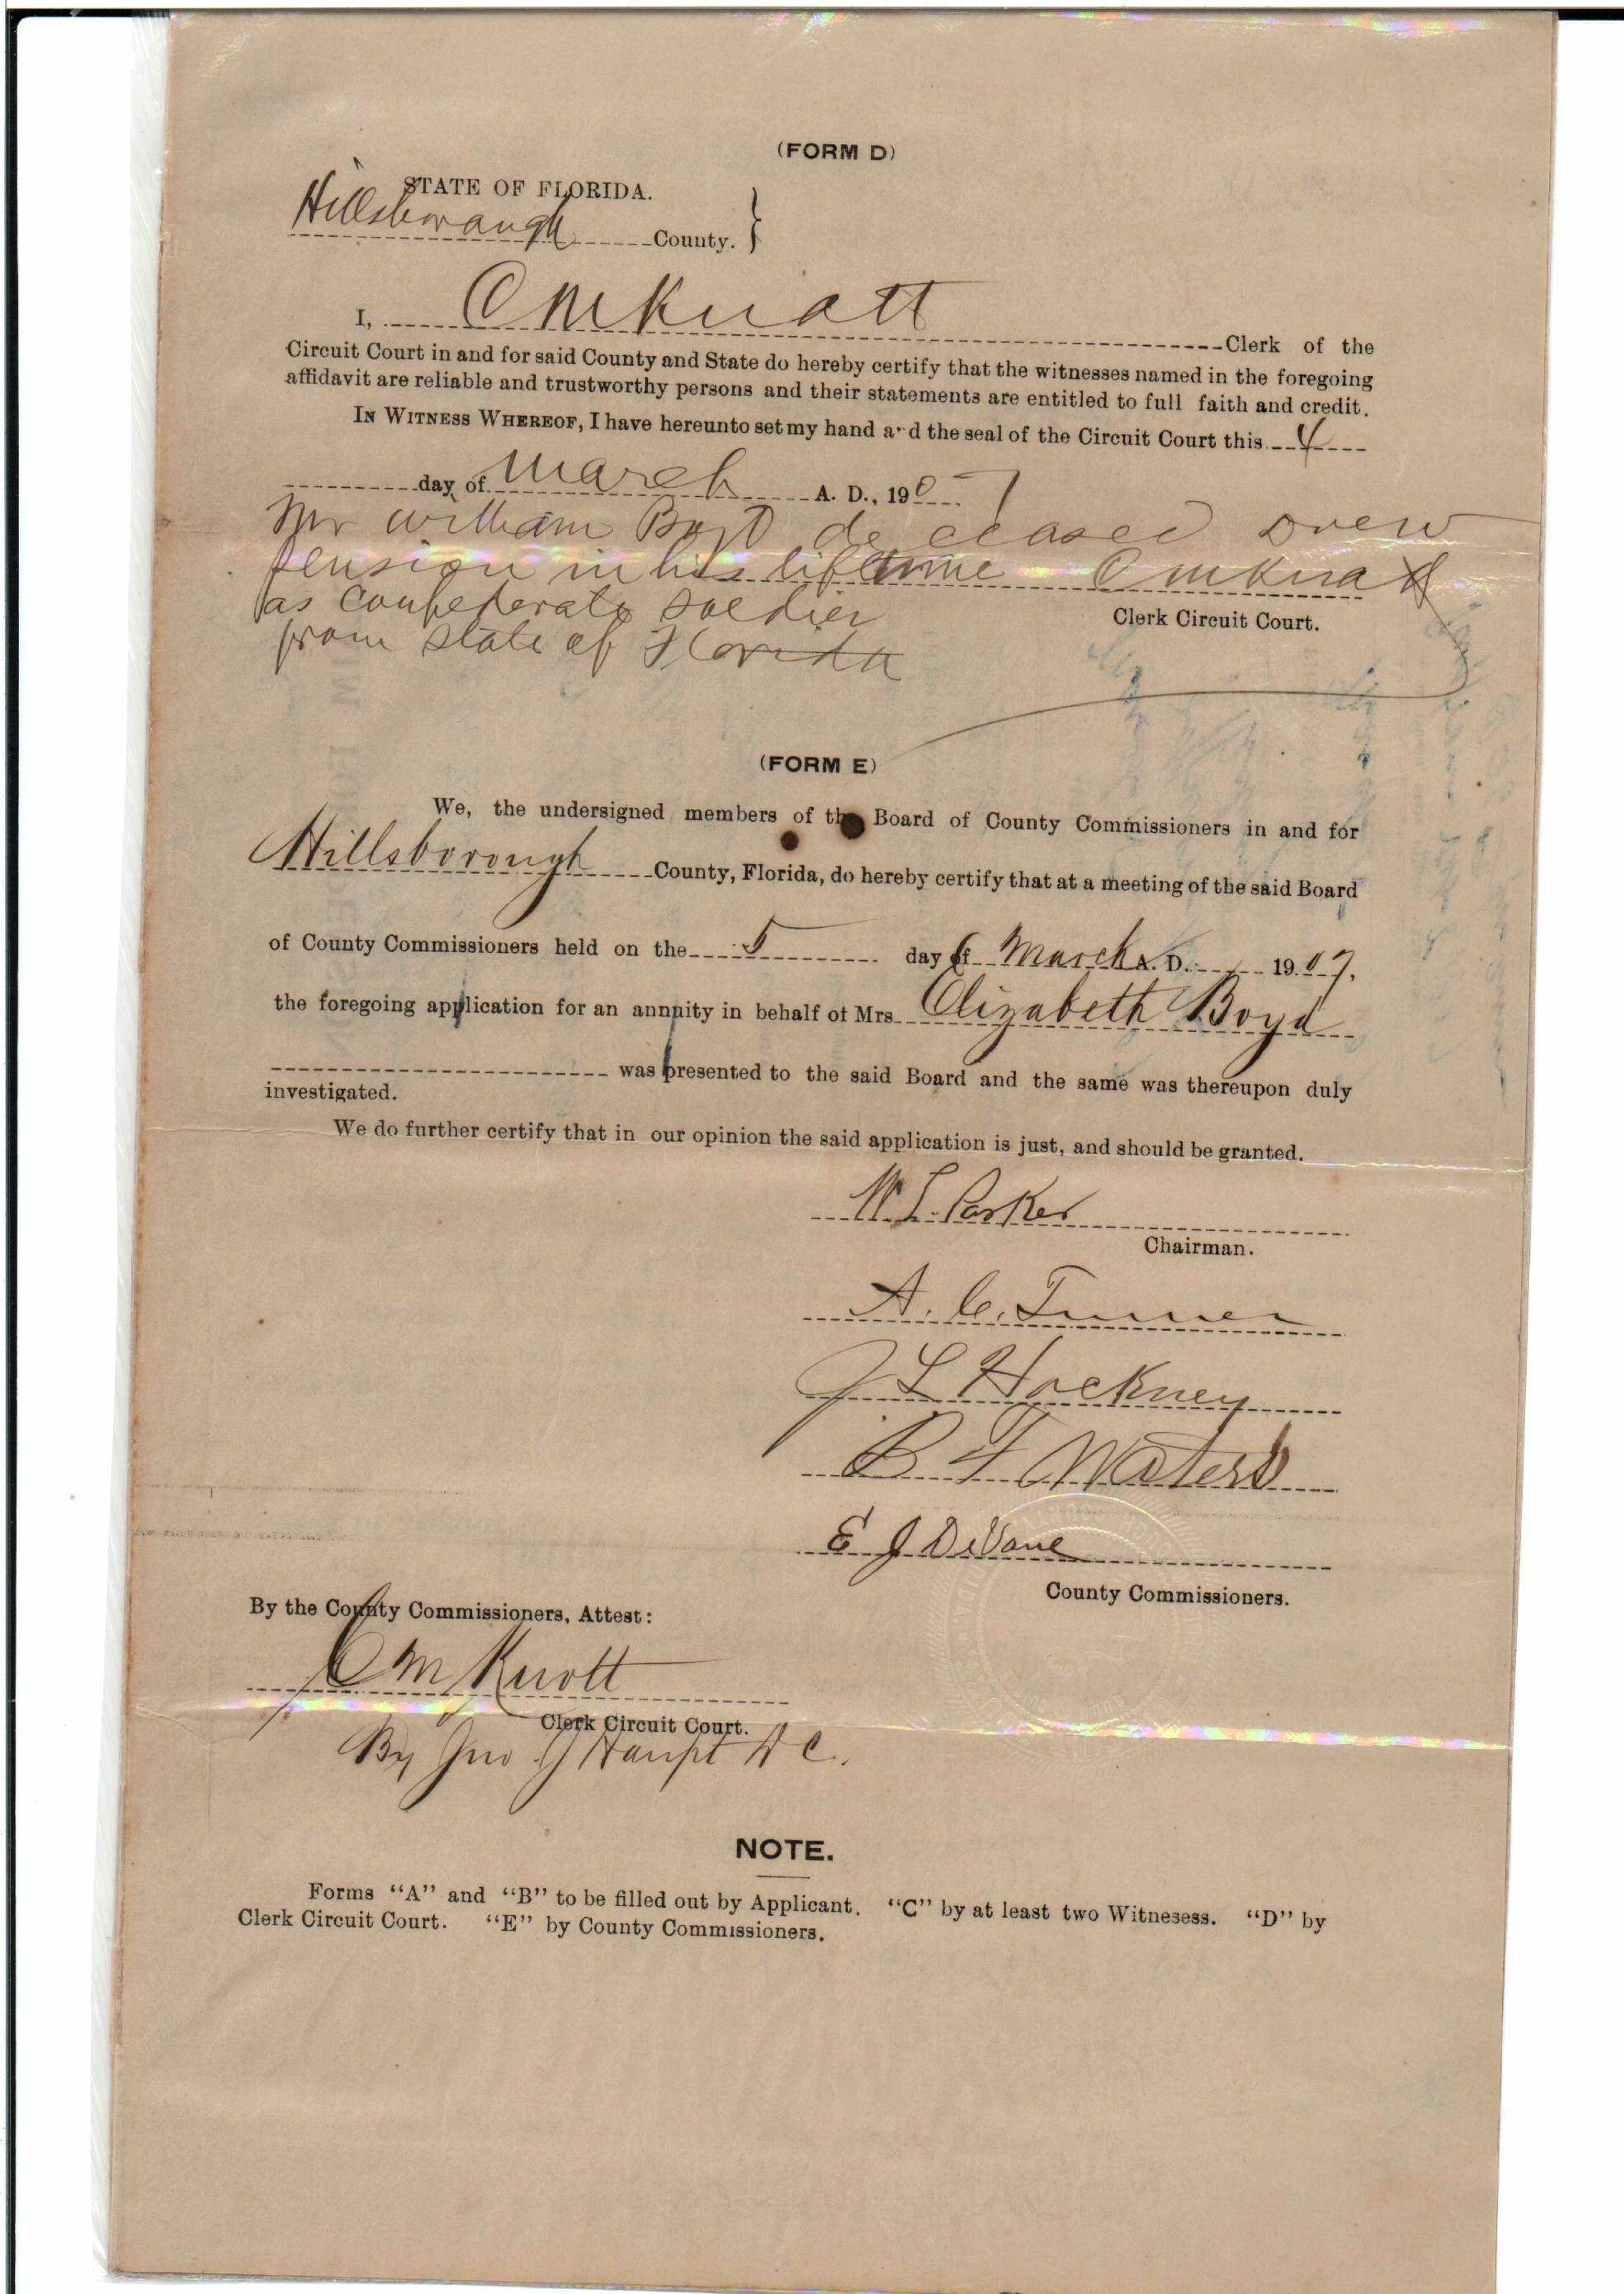 (FORM D)
STATE OF FLORIDA.
Hillsborough County. }
I, C M Knott Clerk of the
Circuit Court in and for said County and State do hereby certify that the witnesses named in the foregoing
affidavit are reliable and trustworthy persons and their statements are entitled to full faith and credit.
IN WITNESS WHEREOF, I have hereunto set my hand a d the seal of the Circuit Court this 4
day of March A. D., 190 7
Mr William Boyd de ceased Drew
pension in his lifetime C M Knott
as confederate soldier
Clerk Circuit Court.
from State of Florida
(FORM E)
We, the undersigned members of the Board of County Commissioners in and for
Hillsborough County, Florida, do hereby certify that at a meeting of the said Board
of County Commissioners held on the 5 day of March A. D. 1907,
the foregoing application for an annuity in behalf of Mrs Elizabeth Boyd
was presented to the said Board and the same was thereupon duly
investigated.
We do further certify that in our opinion the said application is just, and should be granted.
W. L. Parker
Chairman.
A. C. Turner
J L Hackney
B F Waters
E J DeVane
County Commissioners.
By the County Commissioners, Attest:
C M Knott
Clerk Circuit Court.
By Jno J Haupt D C.
NOTE.
Forms "A" and "B" to be filled out by Applicant. "C" by at least two Witnesess. "D" by
Clerk Circuit Court. "E" by County Commissioners.